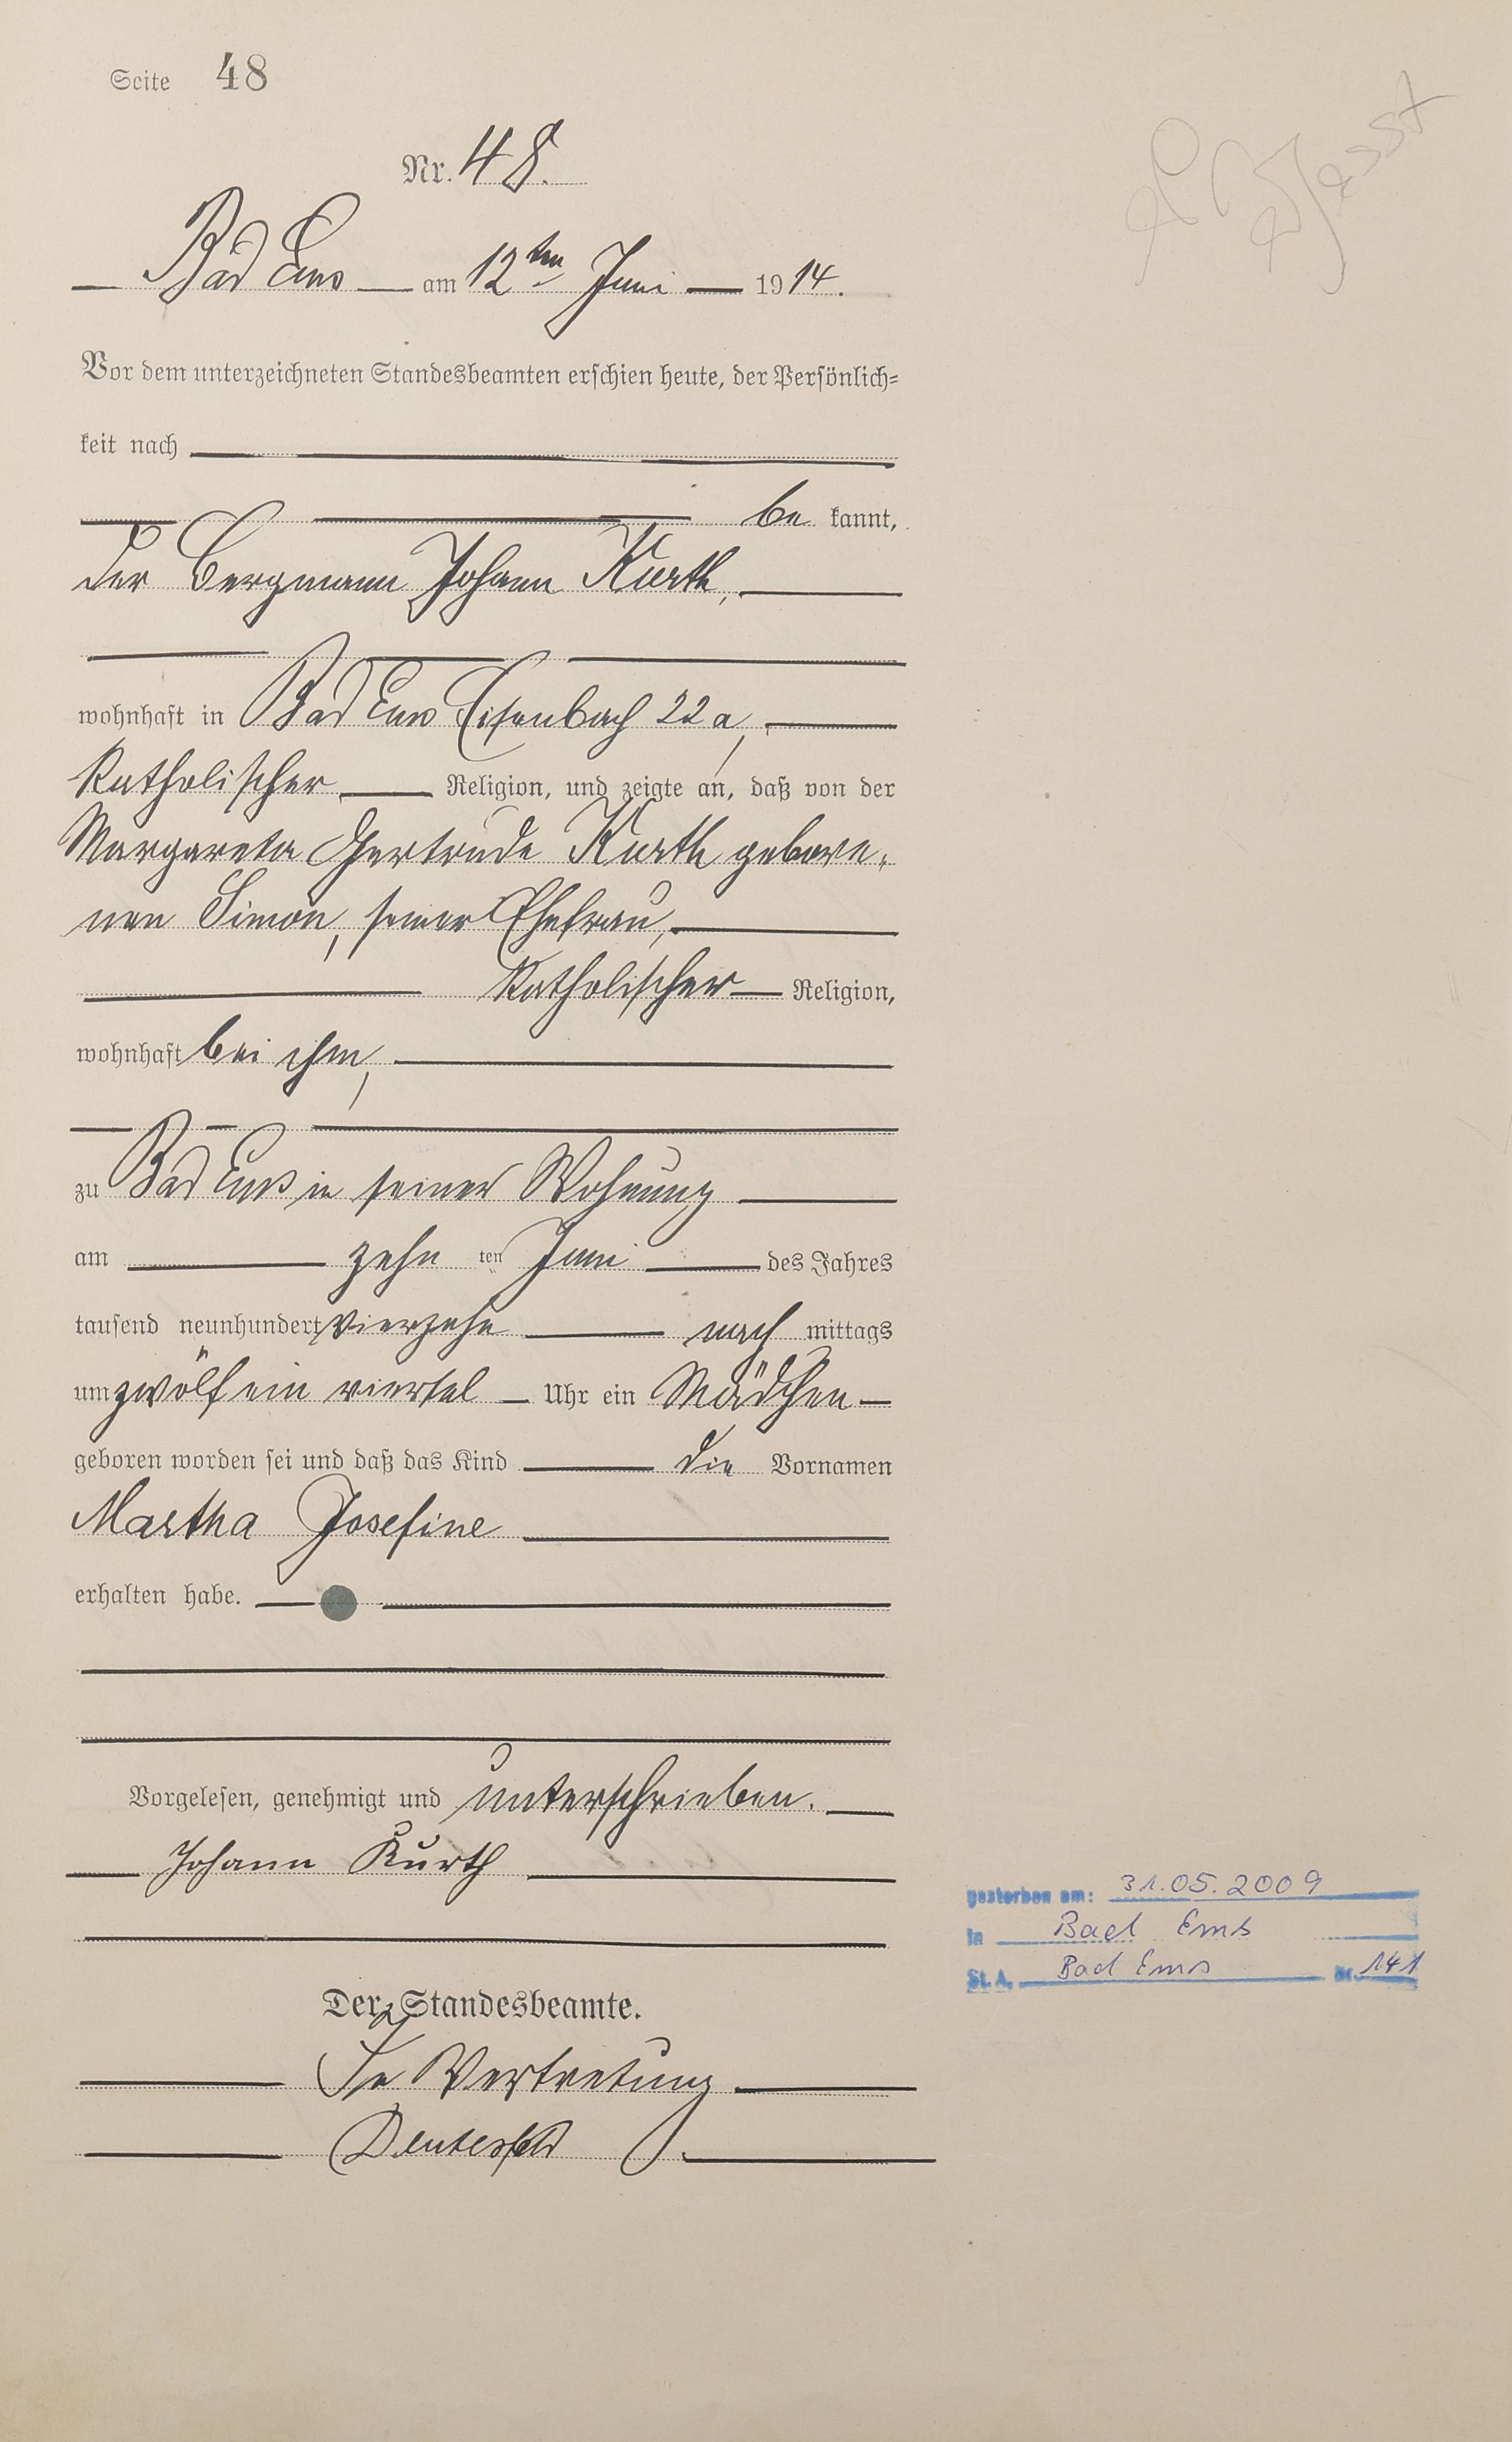 Seite 48
Nr. 48.
Bad Ems am 12ten Juni 1914.
Vor dem unterzeichneten Standesbeamten erschien heute, der Persönlich-
keit nach
be kannt,
der Bergmann Johann Kurth,
wohnhaft in Bad Ems Eisenbach 22a,
Katholischer Religion, und zeigte an, daß von der
Margareta Gertrude Kurth gebore-
nen Simon, seiner Ehefrau,
Katholischer Religion,
wohnhaft bei ihm,
zu Bad Ems in seiner Wohnung
am zehn ten Juni des Jahres
tausend neunhundert vierzehn nach mittags
um zwölf ein viertel Uhr ein Mädchen
geboren worden sei und daß das Kind die Vornamen
Martha Josefine
erhalten habe.
Vorgelesen, genehmigt und unterschrieben.
Johann Kurth
Der Standesbeamte.
In Vertretung
gestorben am: 31.05.2009
in Bad Ems
St. A. Bad Ems Nr. 141